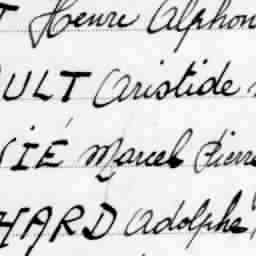 T Henri Alphon
ULT Aristide
SIÉ Marcel Pierre
HARD Adolphe,